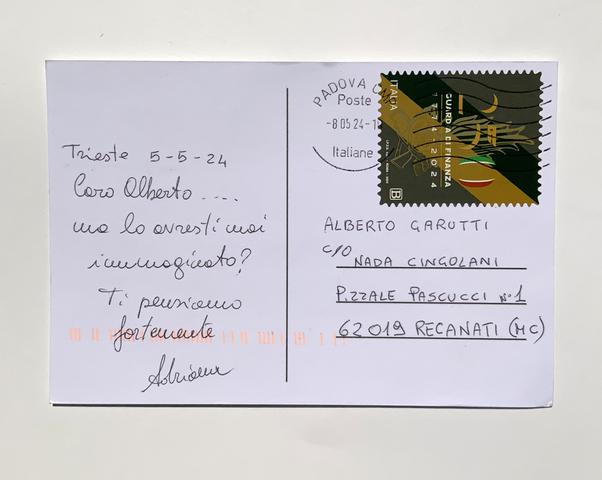 Trieste 5-5-24
Caro Alberto....
ma lo avresti mai
immaginato?
Ti pensiamo
fortemente
Adriana
PADOVA
Poste
-8 05 24-1
Italiane
ITALIA
GUARDIA DI FINANZA
1774-2024
B
ALBERTO GARUTTI
C/O
NADA CINGOLANI
P.ZZALE PASCUCCI N°1
62019 RECANATI (MC)